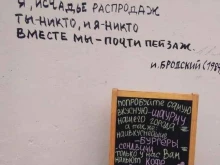 Я, ИСЧАДЬЕ РАСПРОДАЖ
ТЫ-НИКТО, И Я-НИКТО
ВМЕСТЕ МЫ-ПОЧТИ ПЕЙЗАЖ.
И.БРОДСКИЙ
ПОПРОБУЙТЕ САМУЮ
ВКУСНУЮ ШАУРМУ
НАШЕГО ГОРОДА
А ТАКЖЕ
НАИВКУСНЕЙШИЕ
БУРГЕРЫ
ТОЛЬКО У НАС ВАМ
КОФЕ